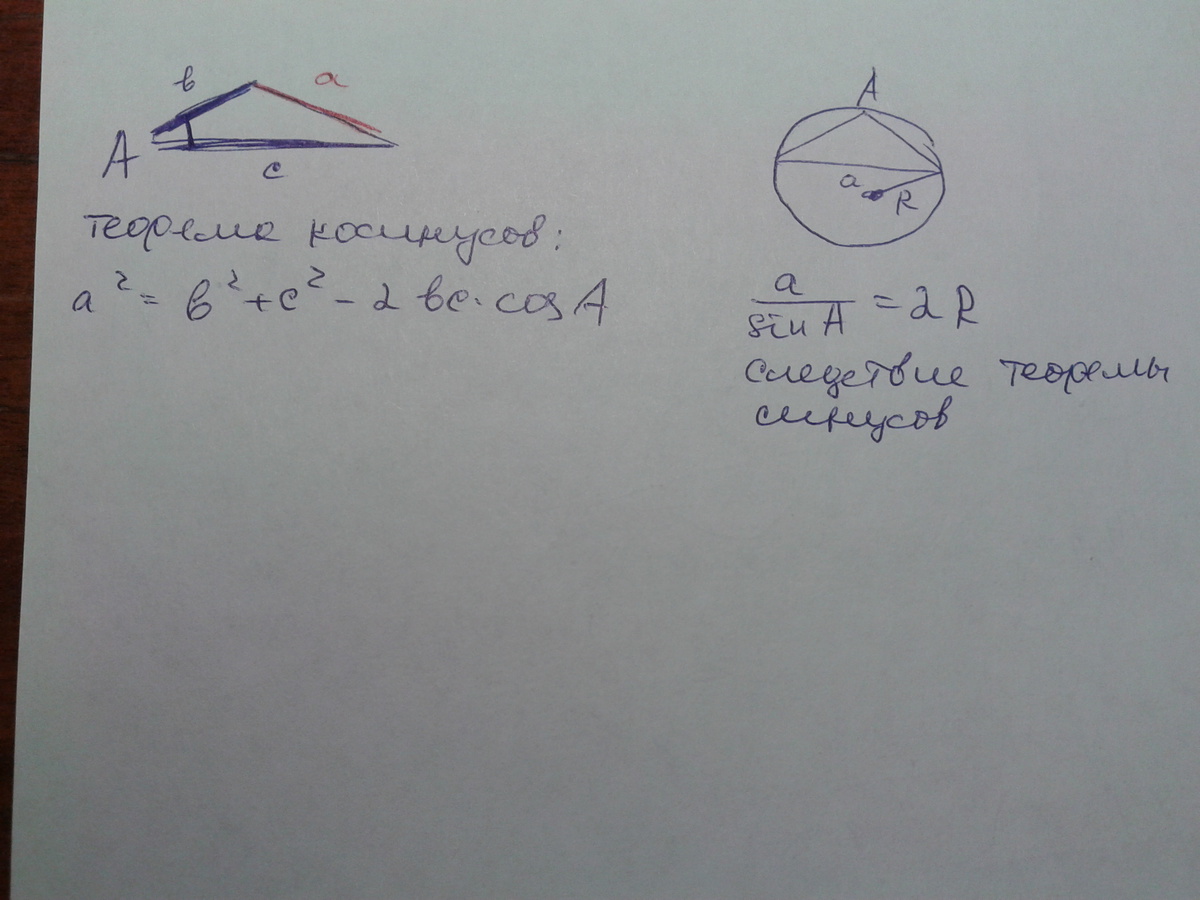 в a
A
c
теорема косинусов:
a² = в² + c² - 2 вc · cos A
A
a R
a / sin A = 2R
следствие теоремы
синусов